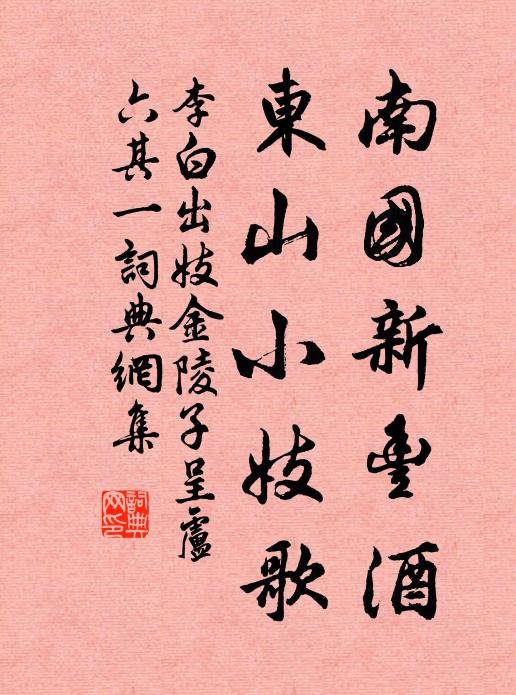 南國新豐酒
東山小妓歌
李白出妓金陵子呈盧
六其一詞典網集
詞典
网印